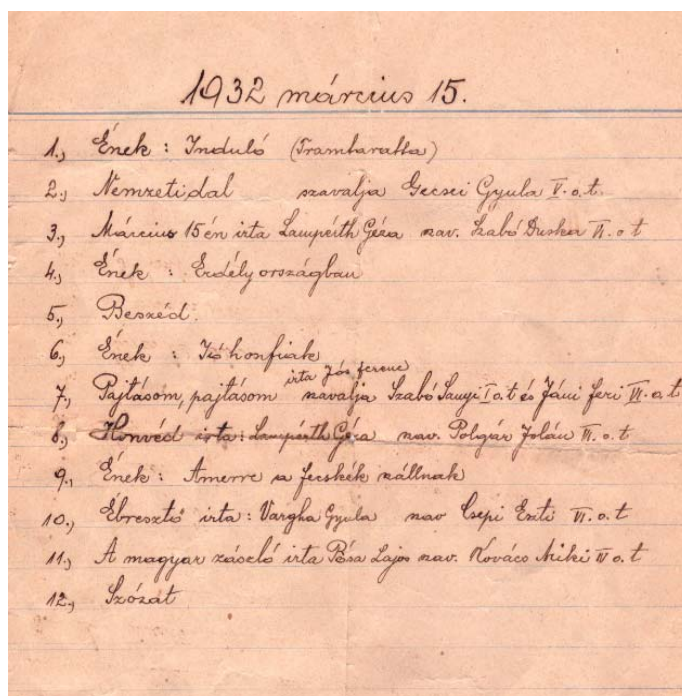 1932 március 15.
1., Ének : Induló (Tramtaratta)
2., Nemzeti dal szavalja Gecsei Gyula V. o. t.
3., Március 15én irta Lampérth Géza szav. Szabó Duska VI. o t
4., Ének : Erdélyországban
5., Beszéd.
6., Ének : Jó honfiak
irta Jós ferenc
7., Pajtásom, pajtásom szavalja Szabó Sanyi I o. t és Jáni feri VI. o t
8., Honvéd irta : Lampérth Géza szav. Polgár Jolán VI. o. t
9., Ének : Amerre a fecskék szállnak
10., Ébresztő irta : Vargha Gyula szav Csepi Eszti VI. o. t
11., A magyar zászló irta Pósa Lajos szav. Kovács Miki IV o. t
12., Szózat